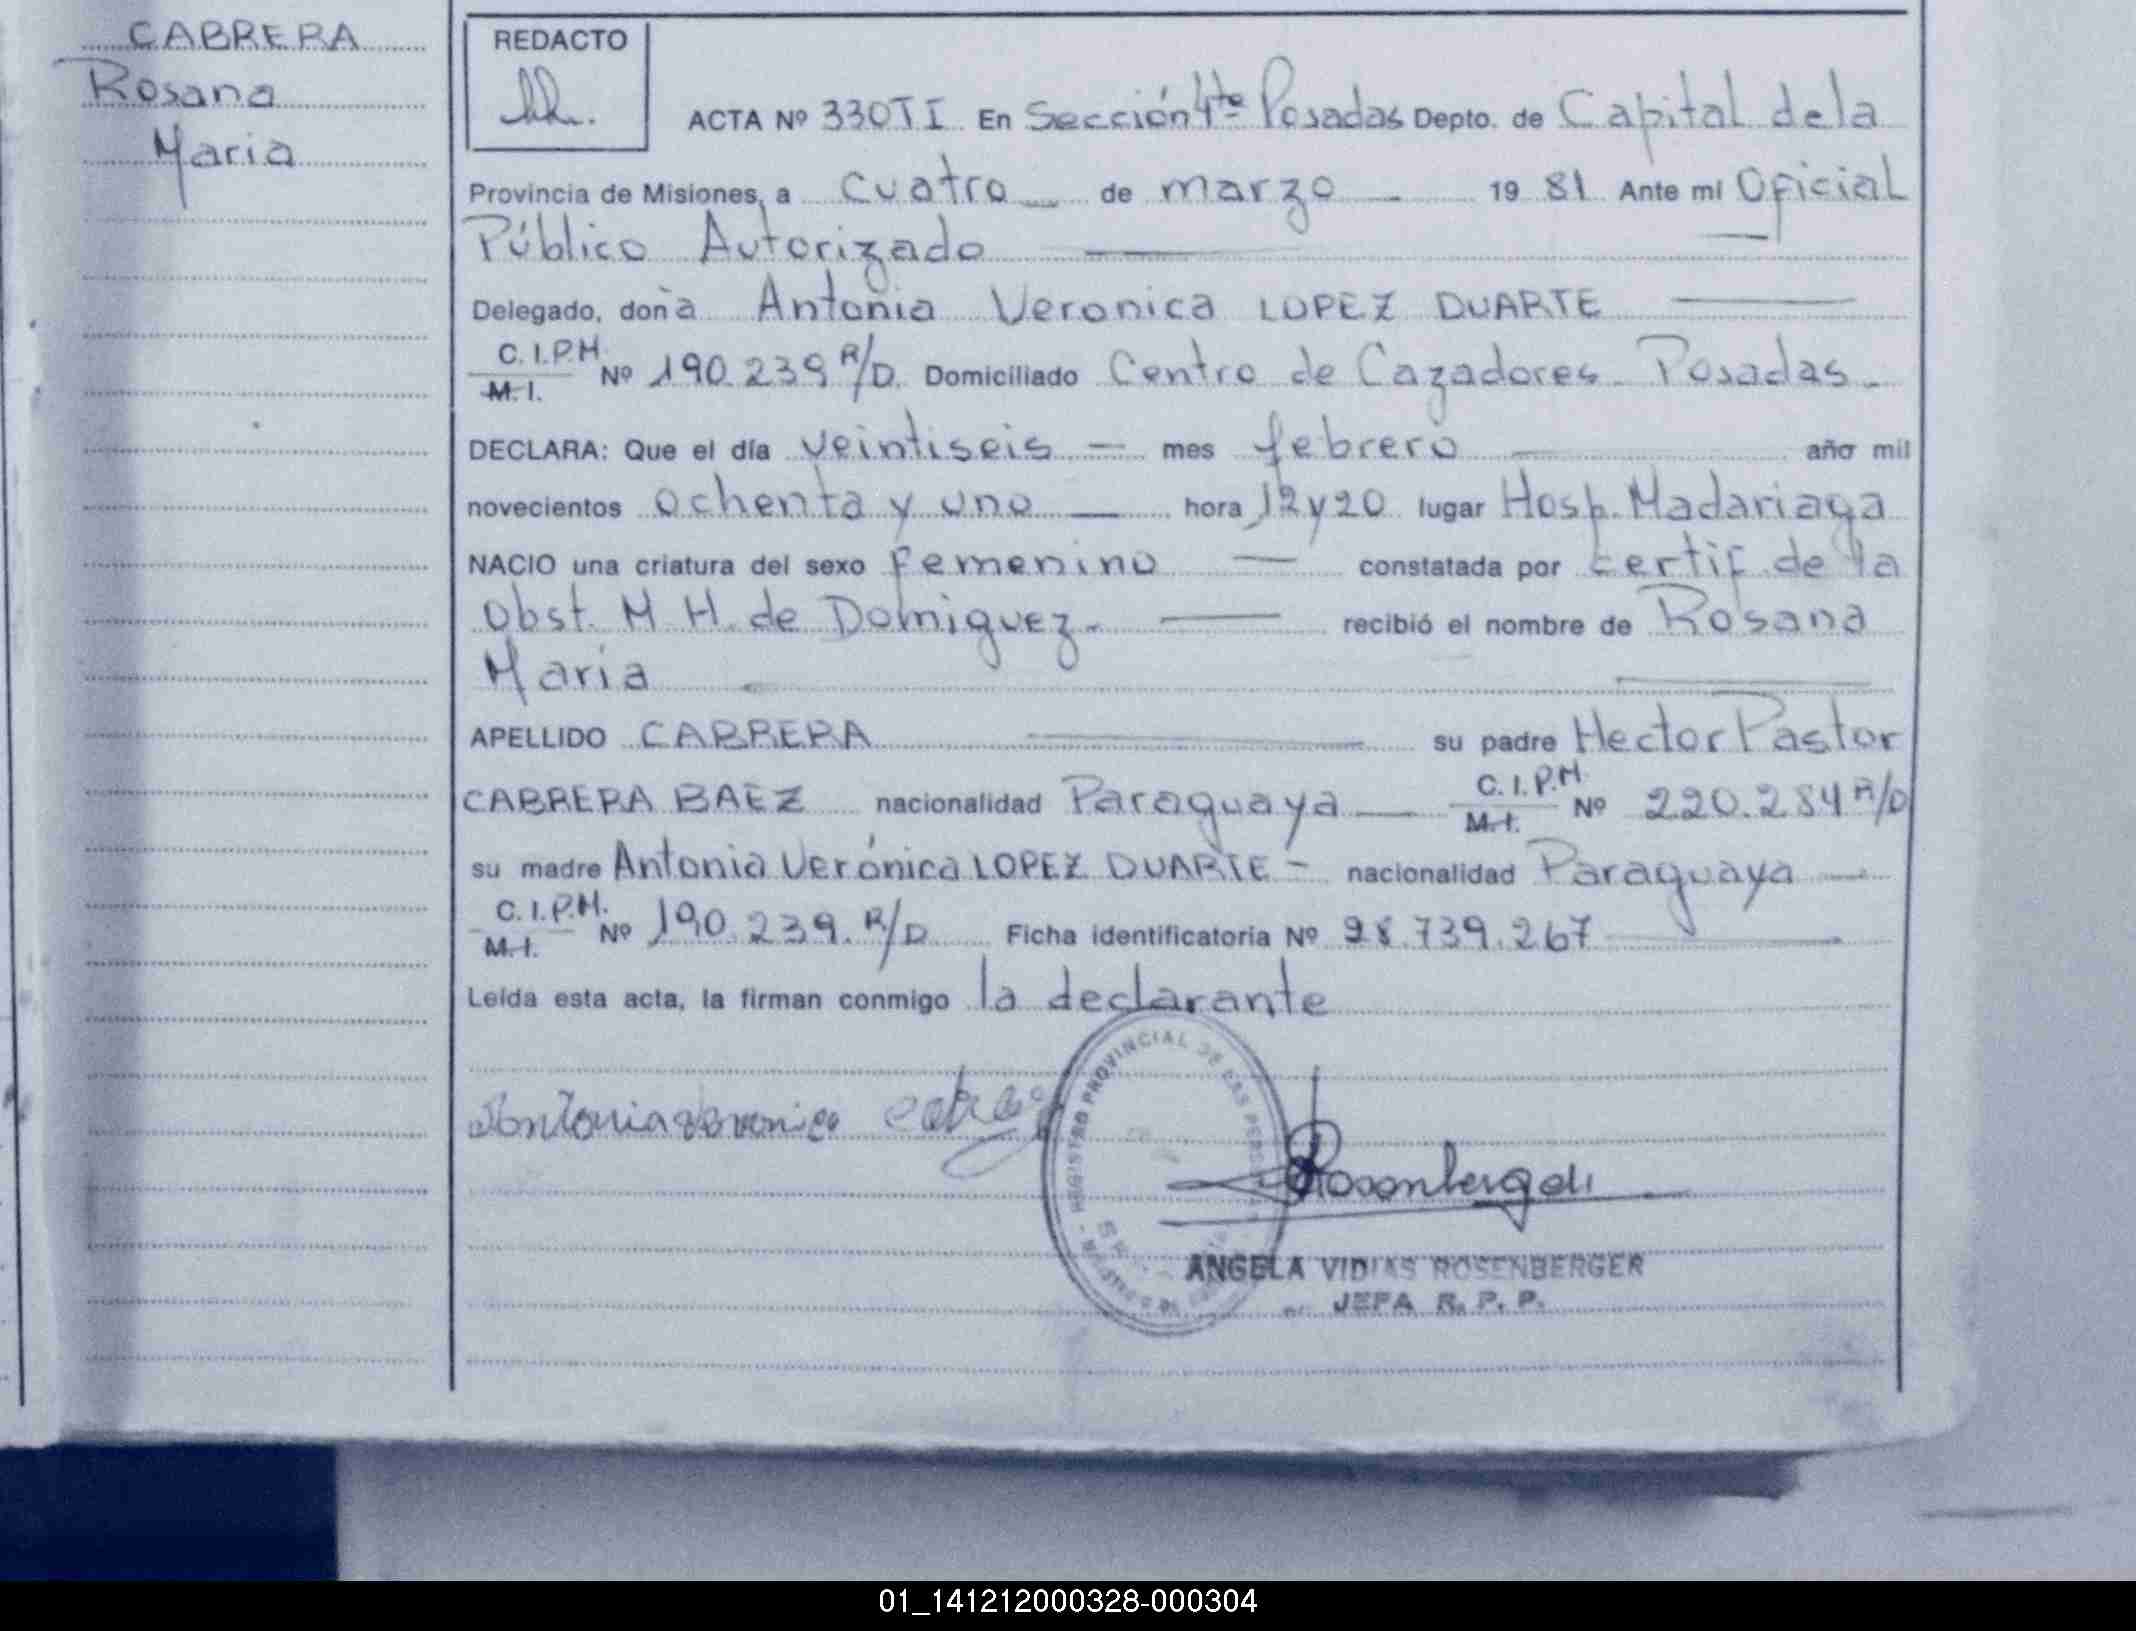 CABRERA
Rosana
Maria
REDACTO
ACTA Nº 330TI En Sección 4ta Posadas Depto. de Capital de la
Provincia de Misiones, a cuatro de marzo 19 81 Ante mí Oficial
Público Autorizado
Delegado, doña Antonia Veronica LOPEZ DUARTE
C.I.P.M. M.I. Nº 190.239 R/D. Domiciliado Centro de Cazadores Posadas
DECLARA: Que el día veintiseis mes febrero año mil
novecientos ochenta y uno hora 12 y 20 lugar Hosp. Madariaga
NACIO una criatura del sexo femenino constatada por certif de la
Obst. M H. de Domiguez. recibió el nombre de Rosana
María
APELLIDO CABRERA su padre Hector Pastor
CABRERA BAEZ nacionalidad Paraguaya C.I.P.M. M.I. Nº 220.284 R/D
su madre Antonia Verónica LOPEZ DUARTE nacionalidad Paraguaya
C.I.P.M. M.I. Nº 190.239. R/D Ficha identificatoria Nº 28.739.267
Leída esta acta, la firman conmigo la declarante
Antonia veronica
REGISTRO PROVINCIAL DE LAS PERSONAS
Rosenberger
ANGELA VIDIAS ROSENBERGER
JEFA R. P. P.
01_141212000328-000304